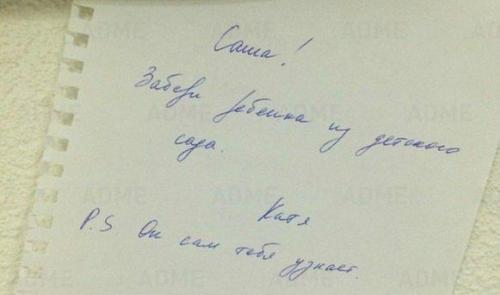 Саша!
Забери ребенка из детского
сада.
Катя
P.S Он сам тебя узнает.
ADME
ADME
ADME
ADME
ADME
ADME
ADME
ADME
ADME